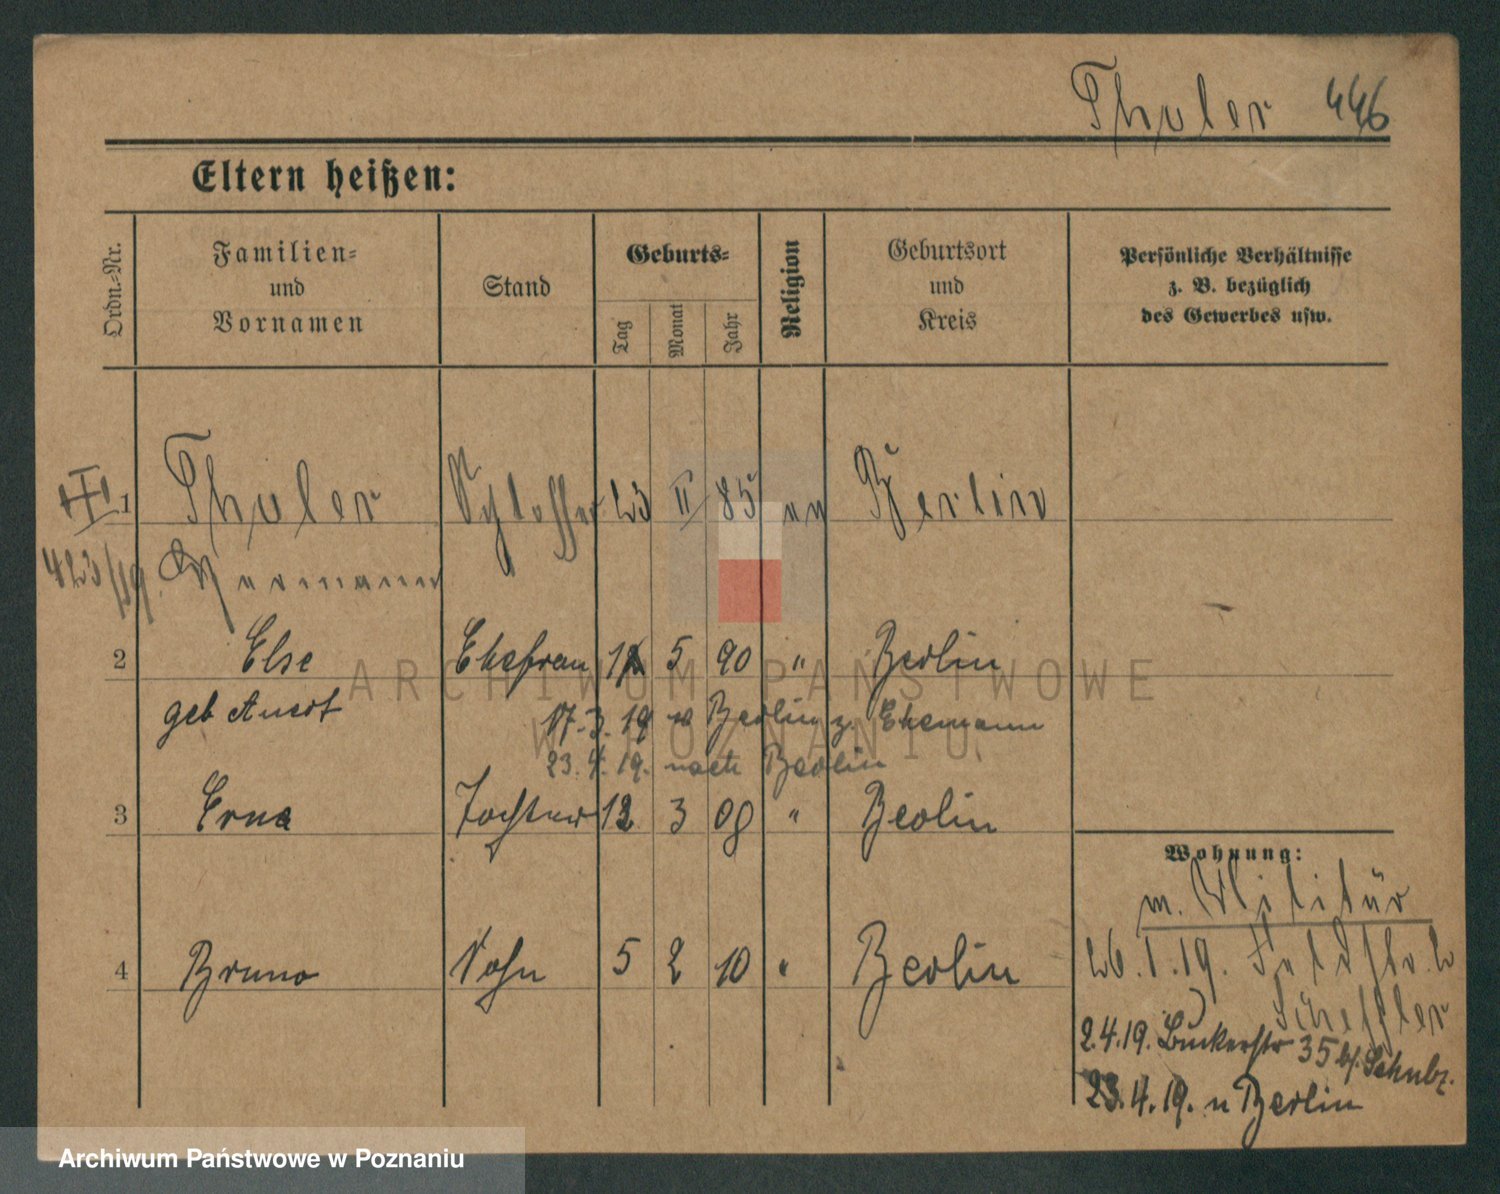 Thuler 446
Eltern heißen:
Ordn.-Nr.
Familien-
und
Vornamen
Stand
Geburts-
Tag
Monat
Jahr
Religion
Geburtsort
und
Kreis
Persönliche Verhältnisse
z. B. bezüglich
des Gewerbes usw.
1 Thuler Schlosser 23 II 85 ev Berlin
423/19. Hermann
2 Else Ehefrau 12 5 90 " Berlin
geb
17.3.19 v Berlin z. Ehemann
23.4.19. nach Berlin
3 Erna Tochter 12 3 08 " Berlin
Wohnung:
m. Militär
4 Bruno Sohn 5 2 10 " Berlin
26.1.19. 2
Scheffler
2.4.19. Bukerstr 35 b/. Schulz.
23.4.19. n Berlin
ARCHIWUM PAŃSTWOWE
W POZNANIU
Archiwum Państwowe w Poznaniu